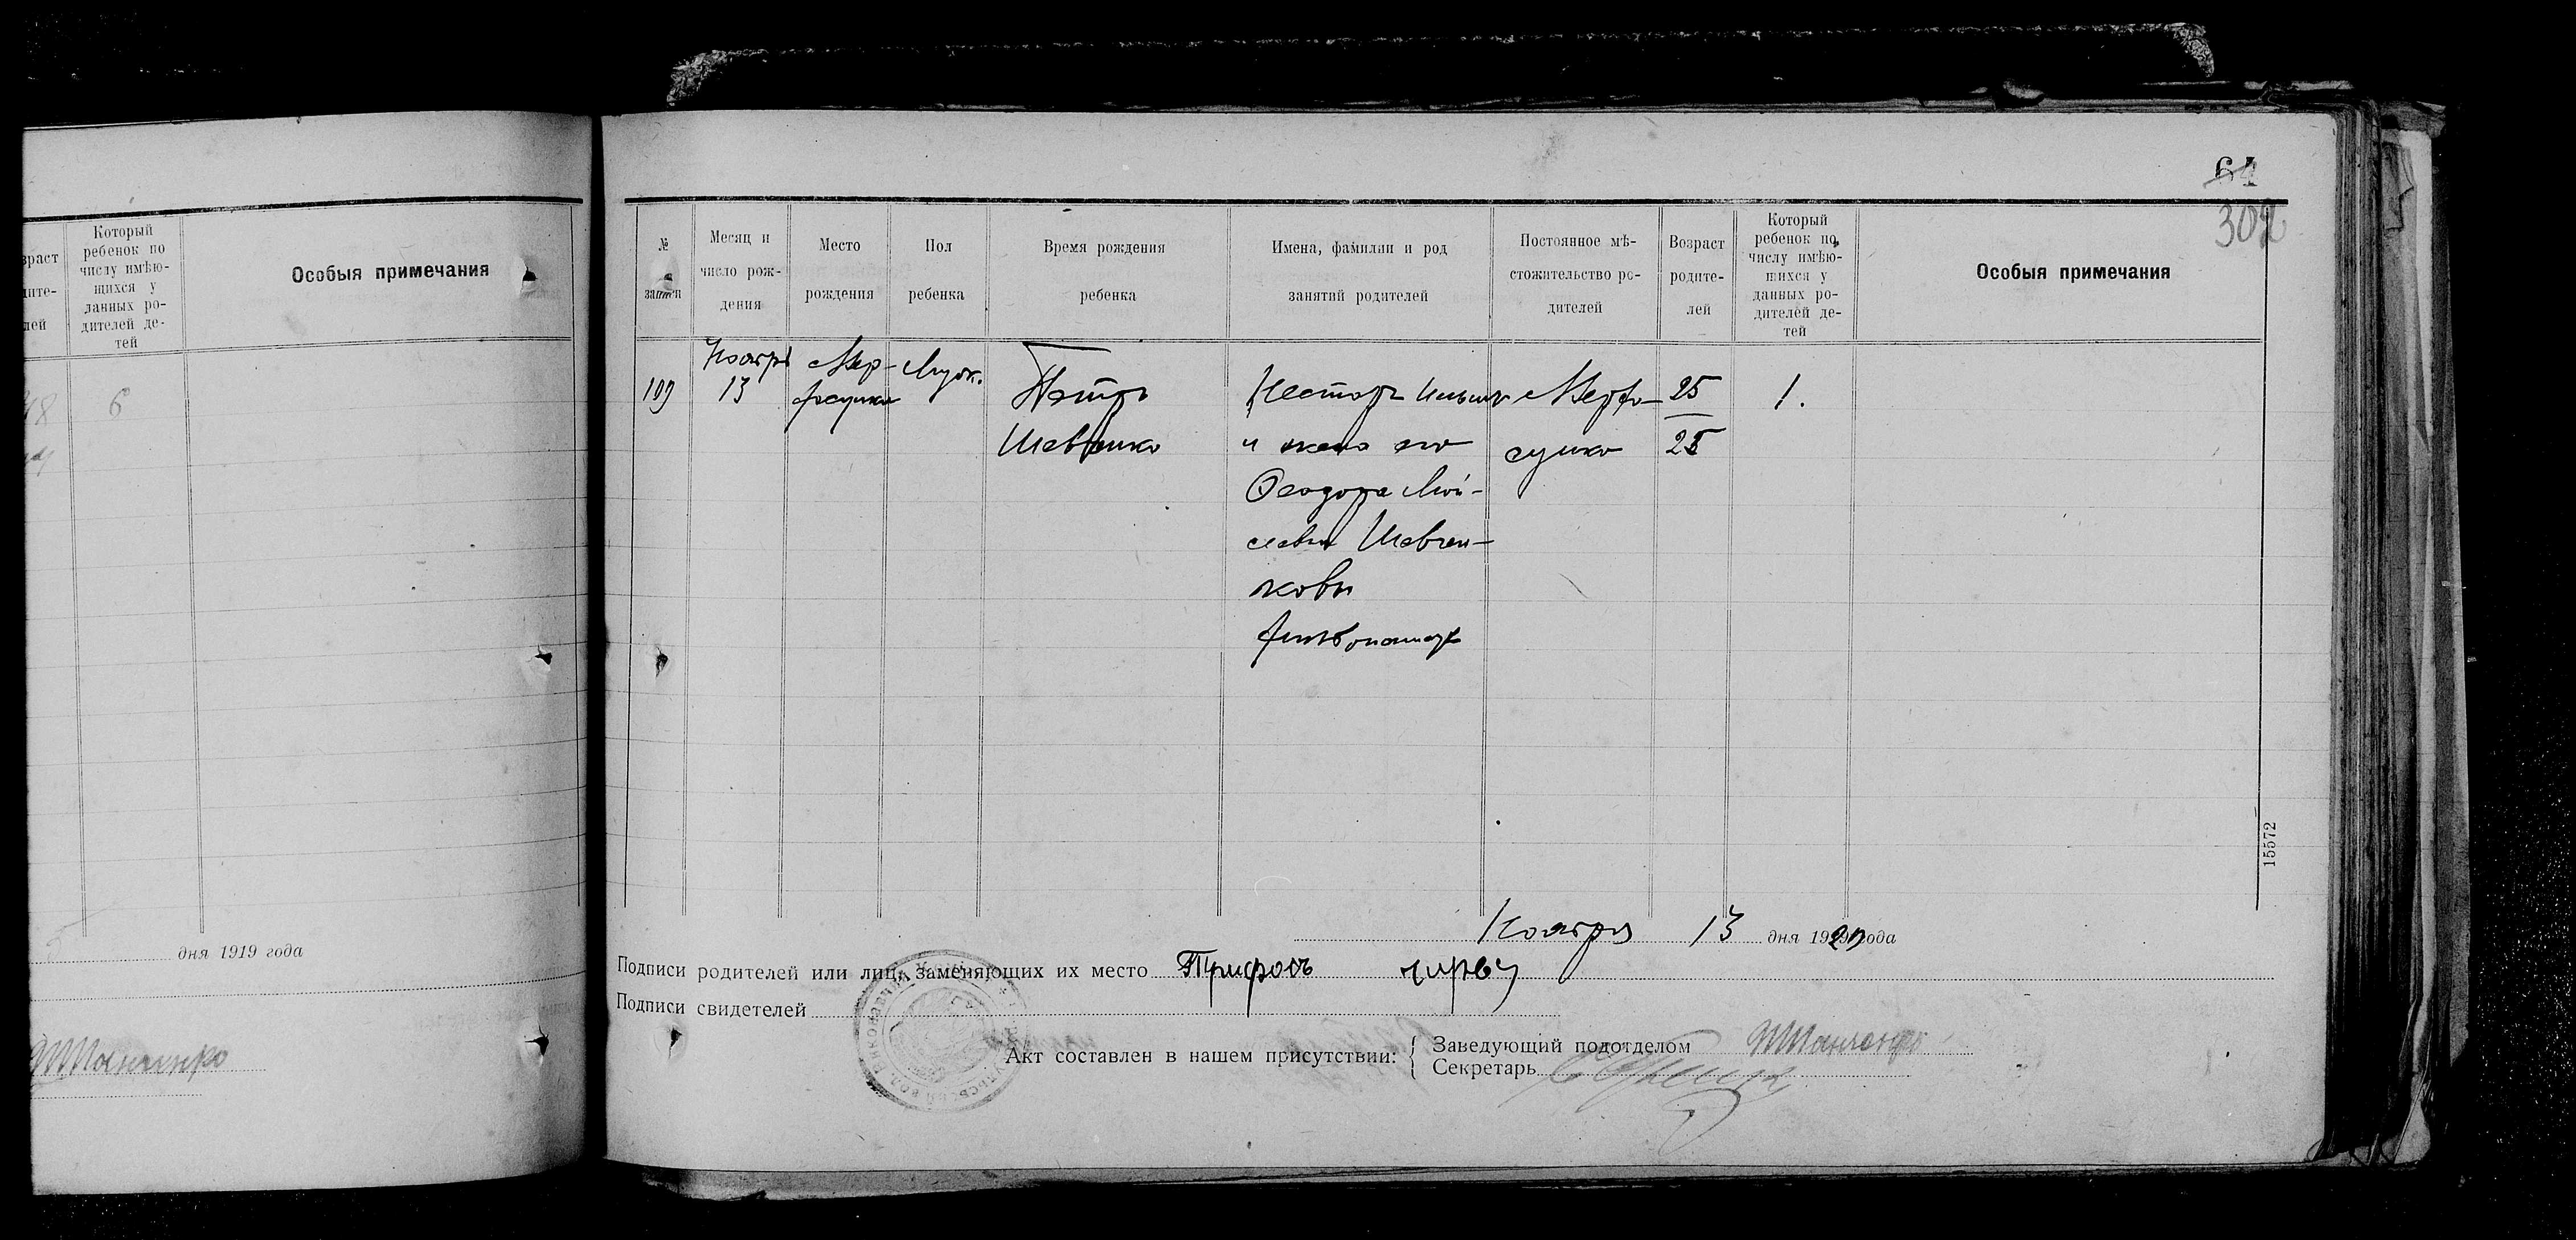 зраст
дите-
лей
Который
ребенок по
числу имѣю-
щихся у
данных ро-
дителей де-
тей
Особыя примечания
6
дня 1919 года
64
302
№
записи
Месяц и
число рож-
дения
Место
рождения
Пол
ребенка
Время рождения
ребенка
Имена, фамилии и род
занятий родителей
Постоянное мѣ-
стожительство ро-
дителей
Возраст
родите-
лей
Который
ребенок по
числу имѣю-
щихся у
данных ро-
дителей де-
тей
Особыя примечания
109
Ноября
13
Мер-
Мужск.
Петр
Шевченко
Нестор Ильин
и жена его
Феодора Мой-
сеевна Шевчен-
ковы
хлебопашцы
25
25
1.
15572
Ноября 13 дня 1920 года
Подписи родителей или лиц, заменяющих их место Трифонъ
Подписи свидетелей
Акт составлен в нашем присутствии:
Заведующий подотделом
Секретарь